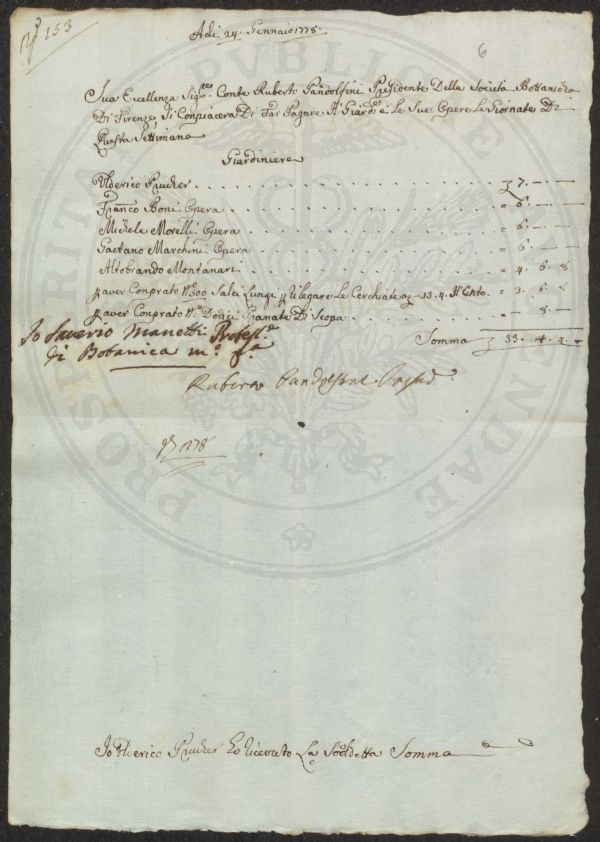 N.º 153
Adi 24. Gennaio 1778.
6
Sua Eccellenza Sig.re Conte Ruberto Pandolfini Presidente Della Società Bottanicha
Di Firenze Si Conpiacera Di Far Pagare Al Giard.re e Le Sue Opere Le Giornate Di
Questa Settimana
Giardiniere
Ulderico Prucher . . . 7. — —
Franco Boni Opera . . . = 6. — —
Michele Morelli Opera . . . = 6. — —
Gaetano Marchini Opera . . . = 6. — —
Aldobrando Montanari . . . = 4. 6. 8
p aver Conprato N.º 300 Salci Lungi p Rilegare Le Cerchiate a 13. 4. Il Cnto. = 3. 6. 8
p aver Conprato N.º Dodici Granate Di Scopa . . . = —. 8. —
Somma 33. 4. 4. =
Io Saverio Manetti Profess.e
di Botanica m.º p.a
Ruberto Pandolfini Presid.e
1778
Io Ulderico Prucher Ho Riceuto La Sodetta Somma
PUBLICAE
PROSPERITATI
AUGENDAE